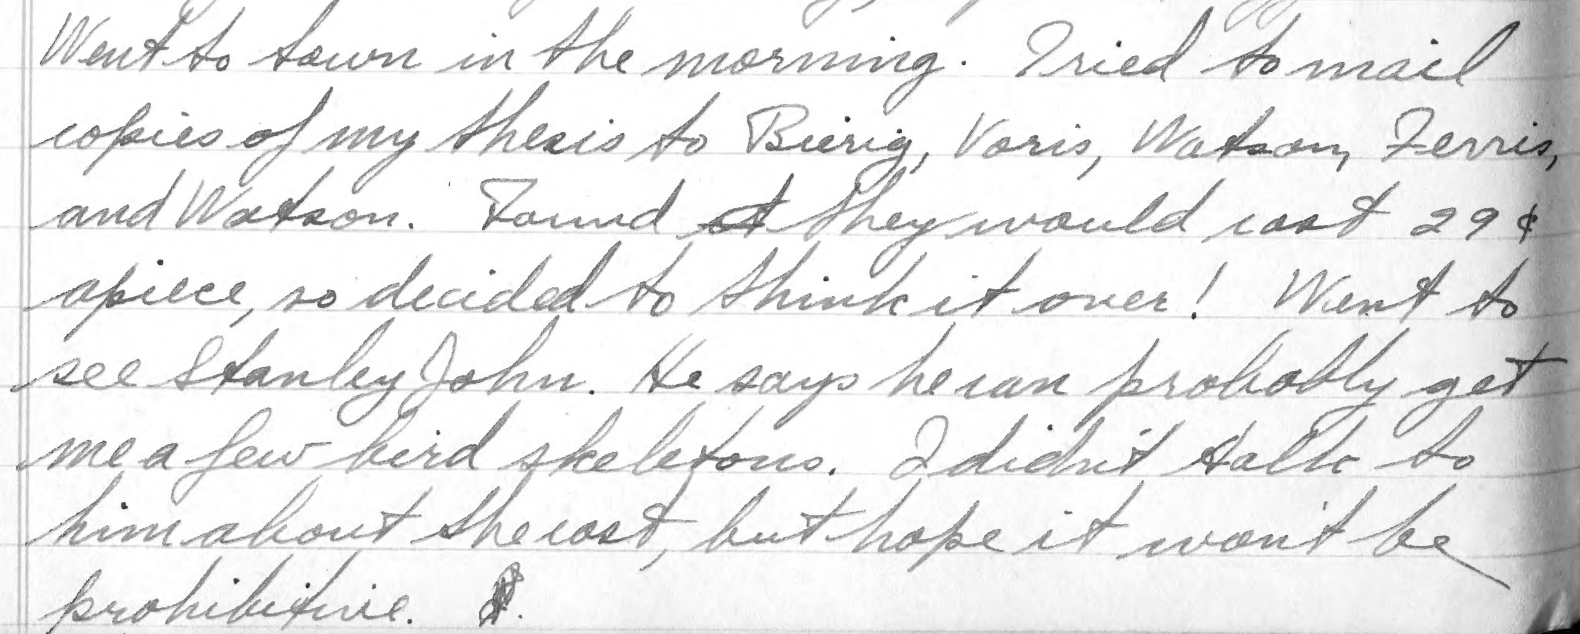 Went to town in the morning. Tried to mail
copies of my thesis to Bierig, Voris, Watson, Ferris,
and Watson. Found they would cost 29¢
apiece, so decided to think it over! Went to
see Stanley John. He says he can probably get
me a few bird skeletons. I didn't talk to
him about the cost, but hope it won't be
prohibitive.